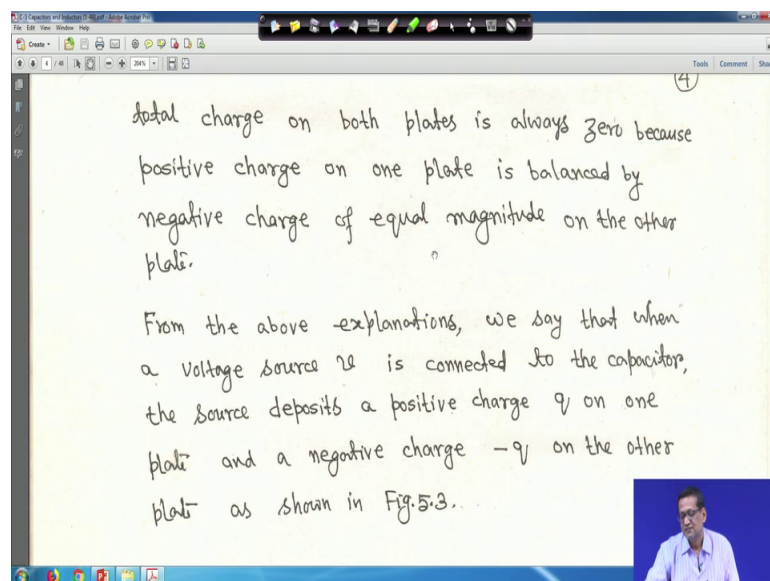 C-3 Capacitors and Inductors (1-48).pdf - Adobe Acrobat Pro
File Edit View Window Help
Create
4 / 48 204% Tools Comment Sha
4
total charge on both plates is always zero because
positive charge on one plate is balanced by
negative charge of equal magnitude on the other
plate.
From the above explanations, we say that when
a voltage source v is connected to the capacitor,
the source deposits a positive charge q on one
plate and a negative charge -q on the other
plate as shown in Fig. 5.3.